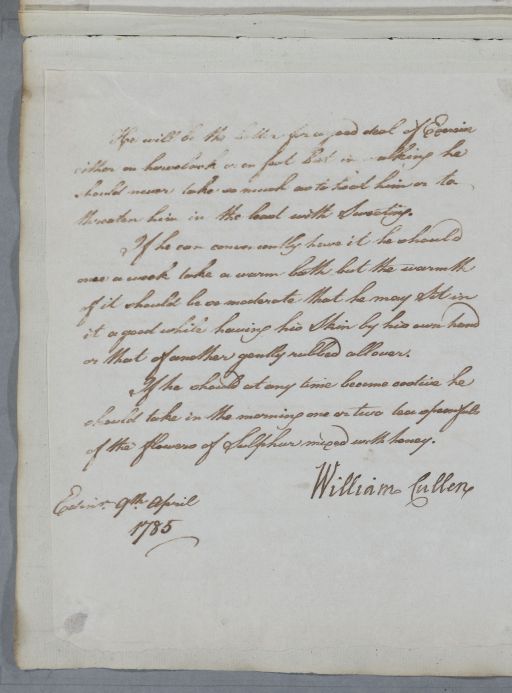 He will be the better for a good deal of Exercise
either on horseback or on foot But in walking he
should never take so much as to heat him or to
threaten him in the least with Sweating.
If he can conveniently have it he should
once a week take a warm bath but the warmth
of it should be so moderate that he may Sit in
it a good while having his Skin by his own hand
or that of another gently rubbed all over.
If he should at any time become costive he
should take in the morning one or two tea spoonfulls
of the flowers of Sulphur mixed with honey.
William Cullen
Edinr. 9th. April
1785